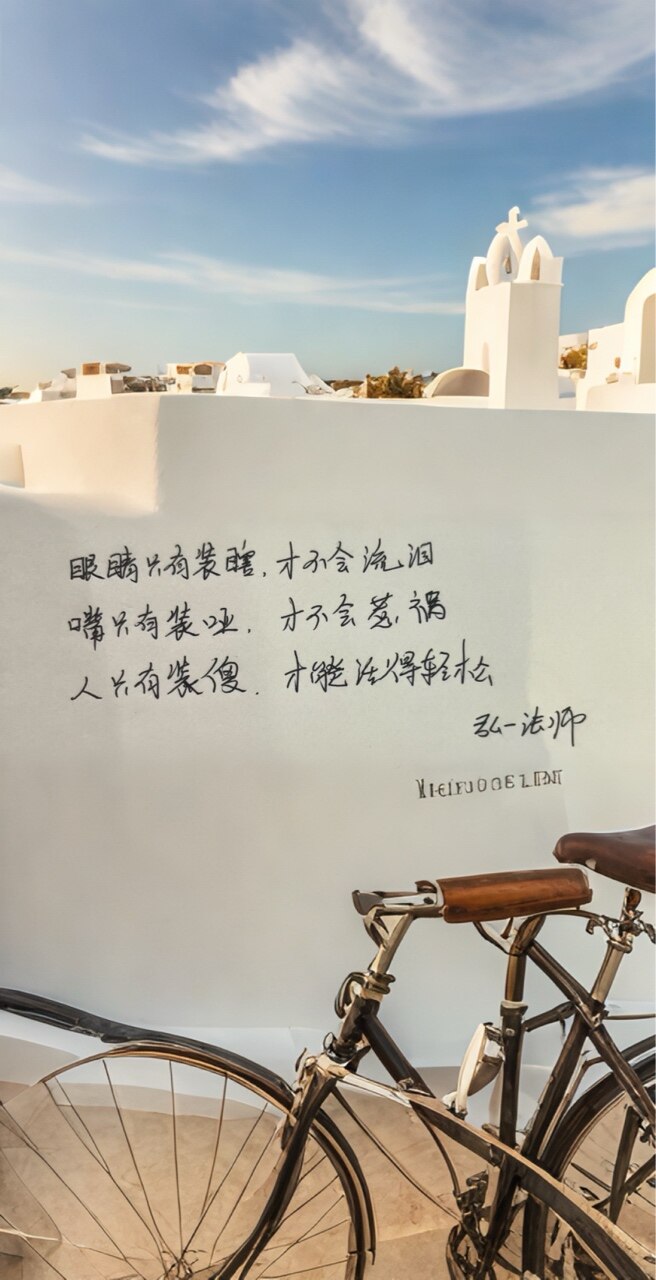 眼睛只有装瞎，才不会流泪
嘴只有装哑，才不会惹祸
人只有装傻，才能活得轻松
弘一法师